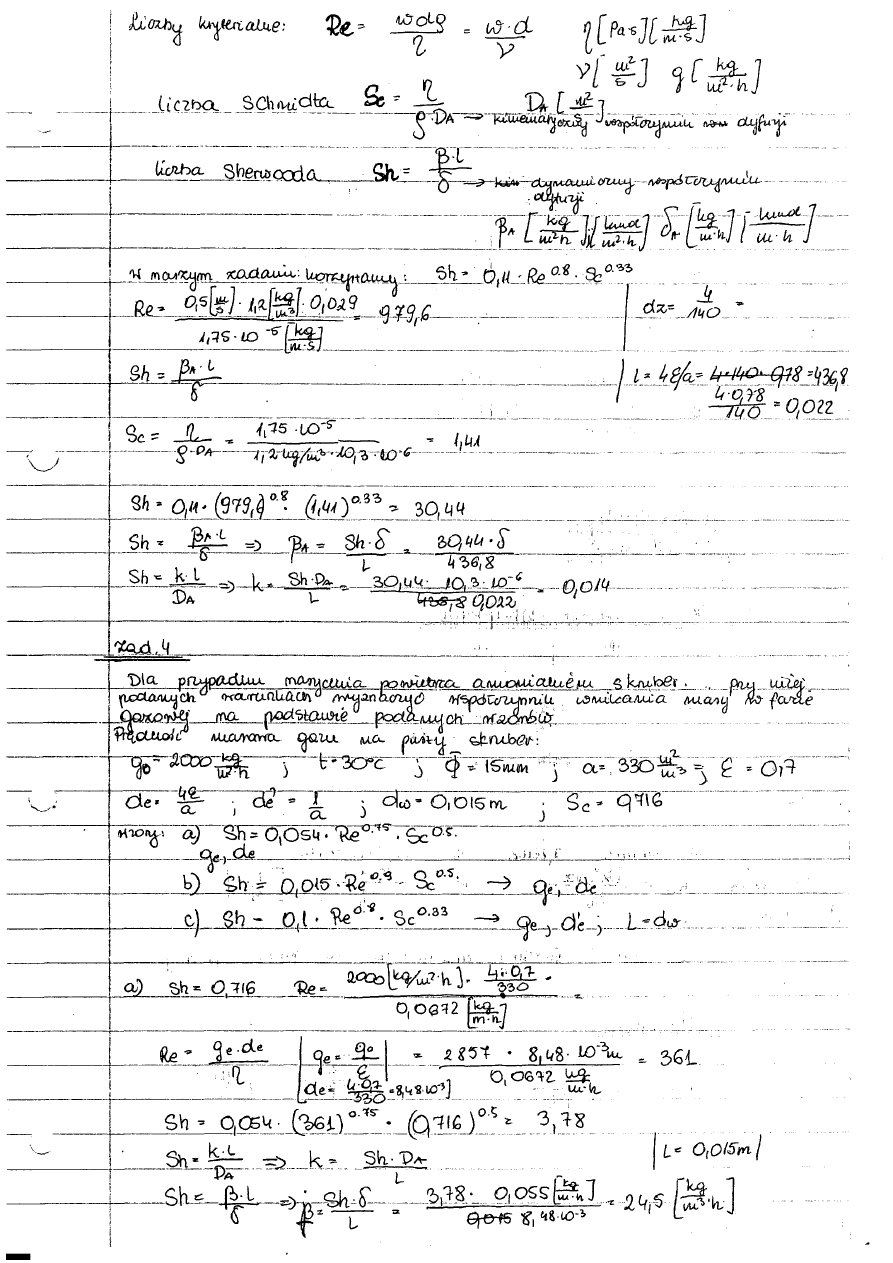 Liczby kryterialne: Re = wdρ/η = w·d/ν η[Pa·s][kg/m·s]
ν[m²/s] g[kg/m²·h]
liczba Schmidta Sc = η/ρ·D_A D_A[m²/s] → kinematyczny współczynnik dyfuzji
liczba Sherwooda Sh = β·l/δ → dynamiczny współczynnik dyfuzji
β_A [kg/m²h][kmol/m²·h] δ_A [kg/m·h][kmol/m·h]
w naszym zadaniu korzystamy: Sh = 0,11 · Re^0.8 · Sc^0.33
Re = 0,5[m/s] · 1,2[kg/m³] · 0,029 / 1,75·10^-5 [kg/m·s] = 979,6 | dz = 4/140 =
Sh = β_A·l/δ | l = 4ε/a = 4·140·0,78 = 436,8
4·0,78/140 = 0,022
Sc = η/ρ·D_A = 1,75·10^-5 / 1,2 kg/m³ · 10,3·10^-6 = 1,41
Sh = 0,11 · (979,6)^0.8 · (1,41)^0.33 = 30,44
Sh = β_A·l/δ => β_A = Sh·δ/L = 30,44·δ/436,8
Sh = k·l/D_A => k = Sh·D_A/L = 30,44 · 10,3·10^-6 / 436,8 0,022 = 0,014
Zad.4
Dla przypadku nasycenia powietrza amoniakiem skruber. przy niżej
podanych warunkach wyznaczyć współczynnik wnikania masy w fazie
gazowej na podstawie podanych wzorów
Prędkość masowa gazu na pusty skruber:
g₀ = 2000 kg/m²·h ; t = 30°C ; Φ = 15mm ; a = 330 m²/m³ = ; ε = 0,7
de = 4ε/a ; de² = 1/a ; dw = 0,015m ; Sc = 0,716
wzory: a) Sh = 0,054 · Re^0.75 · Sc^0.5
ge, de
b) Sh = 0,015 · Re^0.9 · Sc^0.5 → ge, de
c) Sh = 0,1 · Re^0.8 · Sc^0.33 → ge, de ; L = dw
a) Sh = 0,716 Re = 2000[kg/m²·h] · 4·0,7/330 · / 0,0672 [kg/m·h] =
Re = ge·de/η | ge = g₀/ε de = 4·0,7/330 = 8,48·10^-3 | = 2857 · 8,48·10^-3 m / 0,0672 kg/m·h = 361
Sh = 0,054 · (361)^0.75 · (0,716)^0.5 = 3,78
Sh = k·L/D_A => k = Sh·D_A/L | L = 0,015m |
Sh = β·l/δ => β = Sh·δ/L = 3,78 · 0,055[kg/m·h] / 0,015 8,48·10^-3 = 24,5 [kg/m³·h]